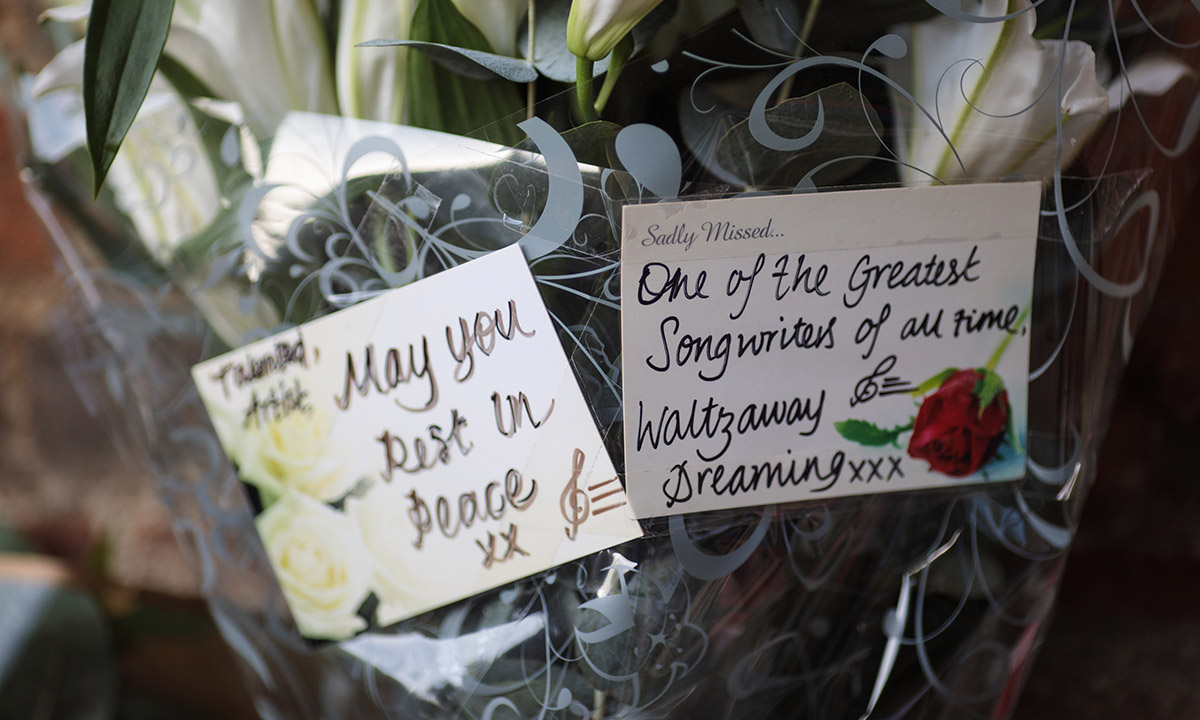 Talented,
Artist.
May you
Rest in
Peace
xx
Sadly Missed...
One of the Greatest
Songwriters of all time.
Waltzaway
Dreaming xxx